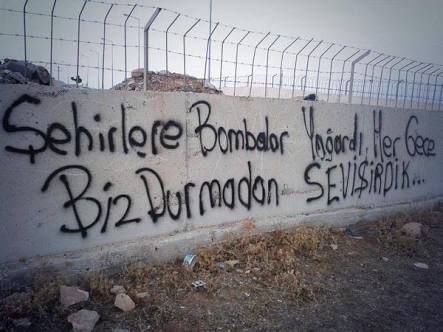 Şehirlere Bombalar Yağardı Her Gece
Biz Durmadan SEVİŞİRDİK...